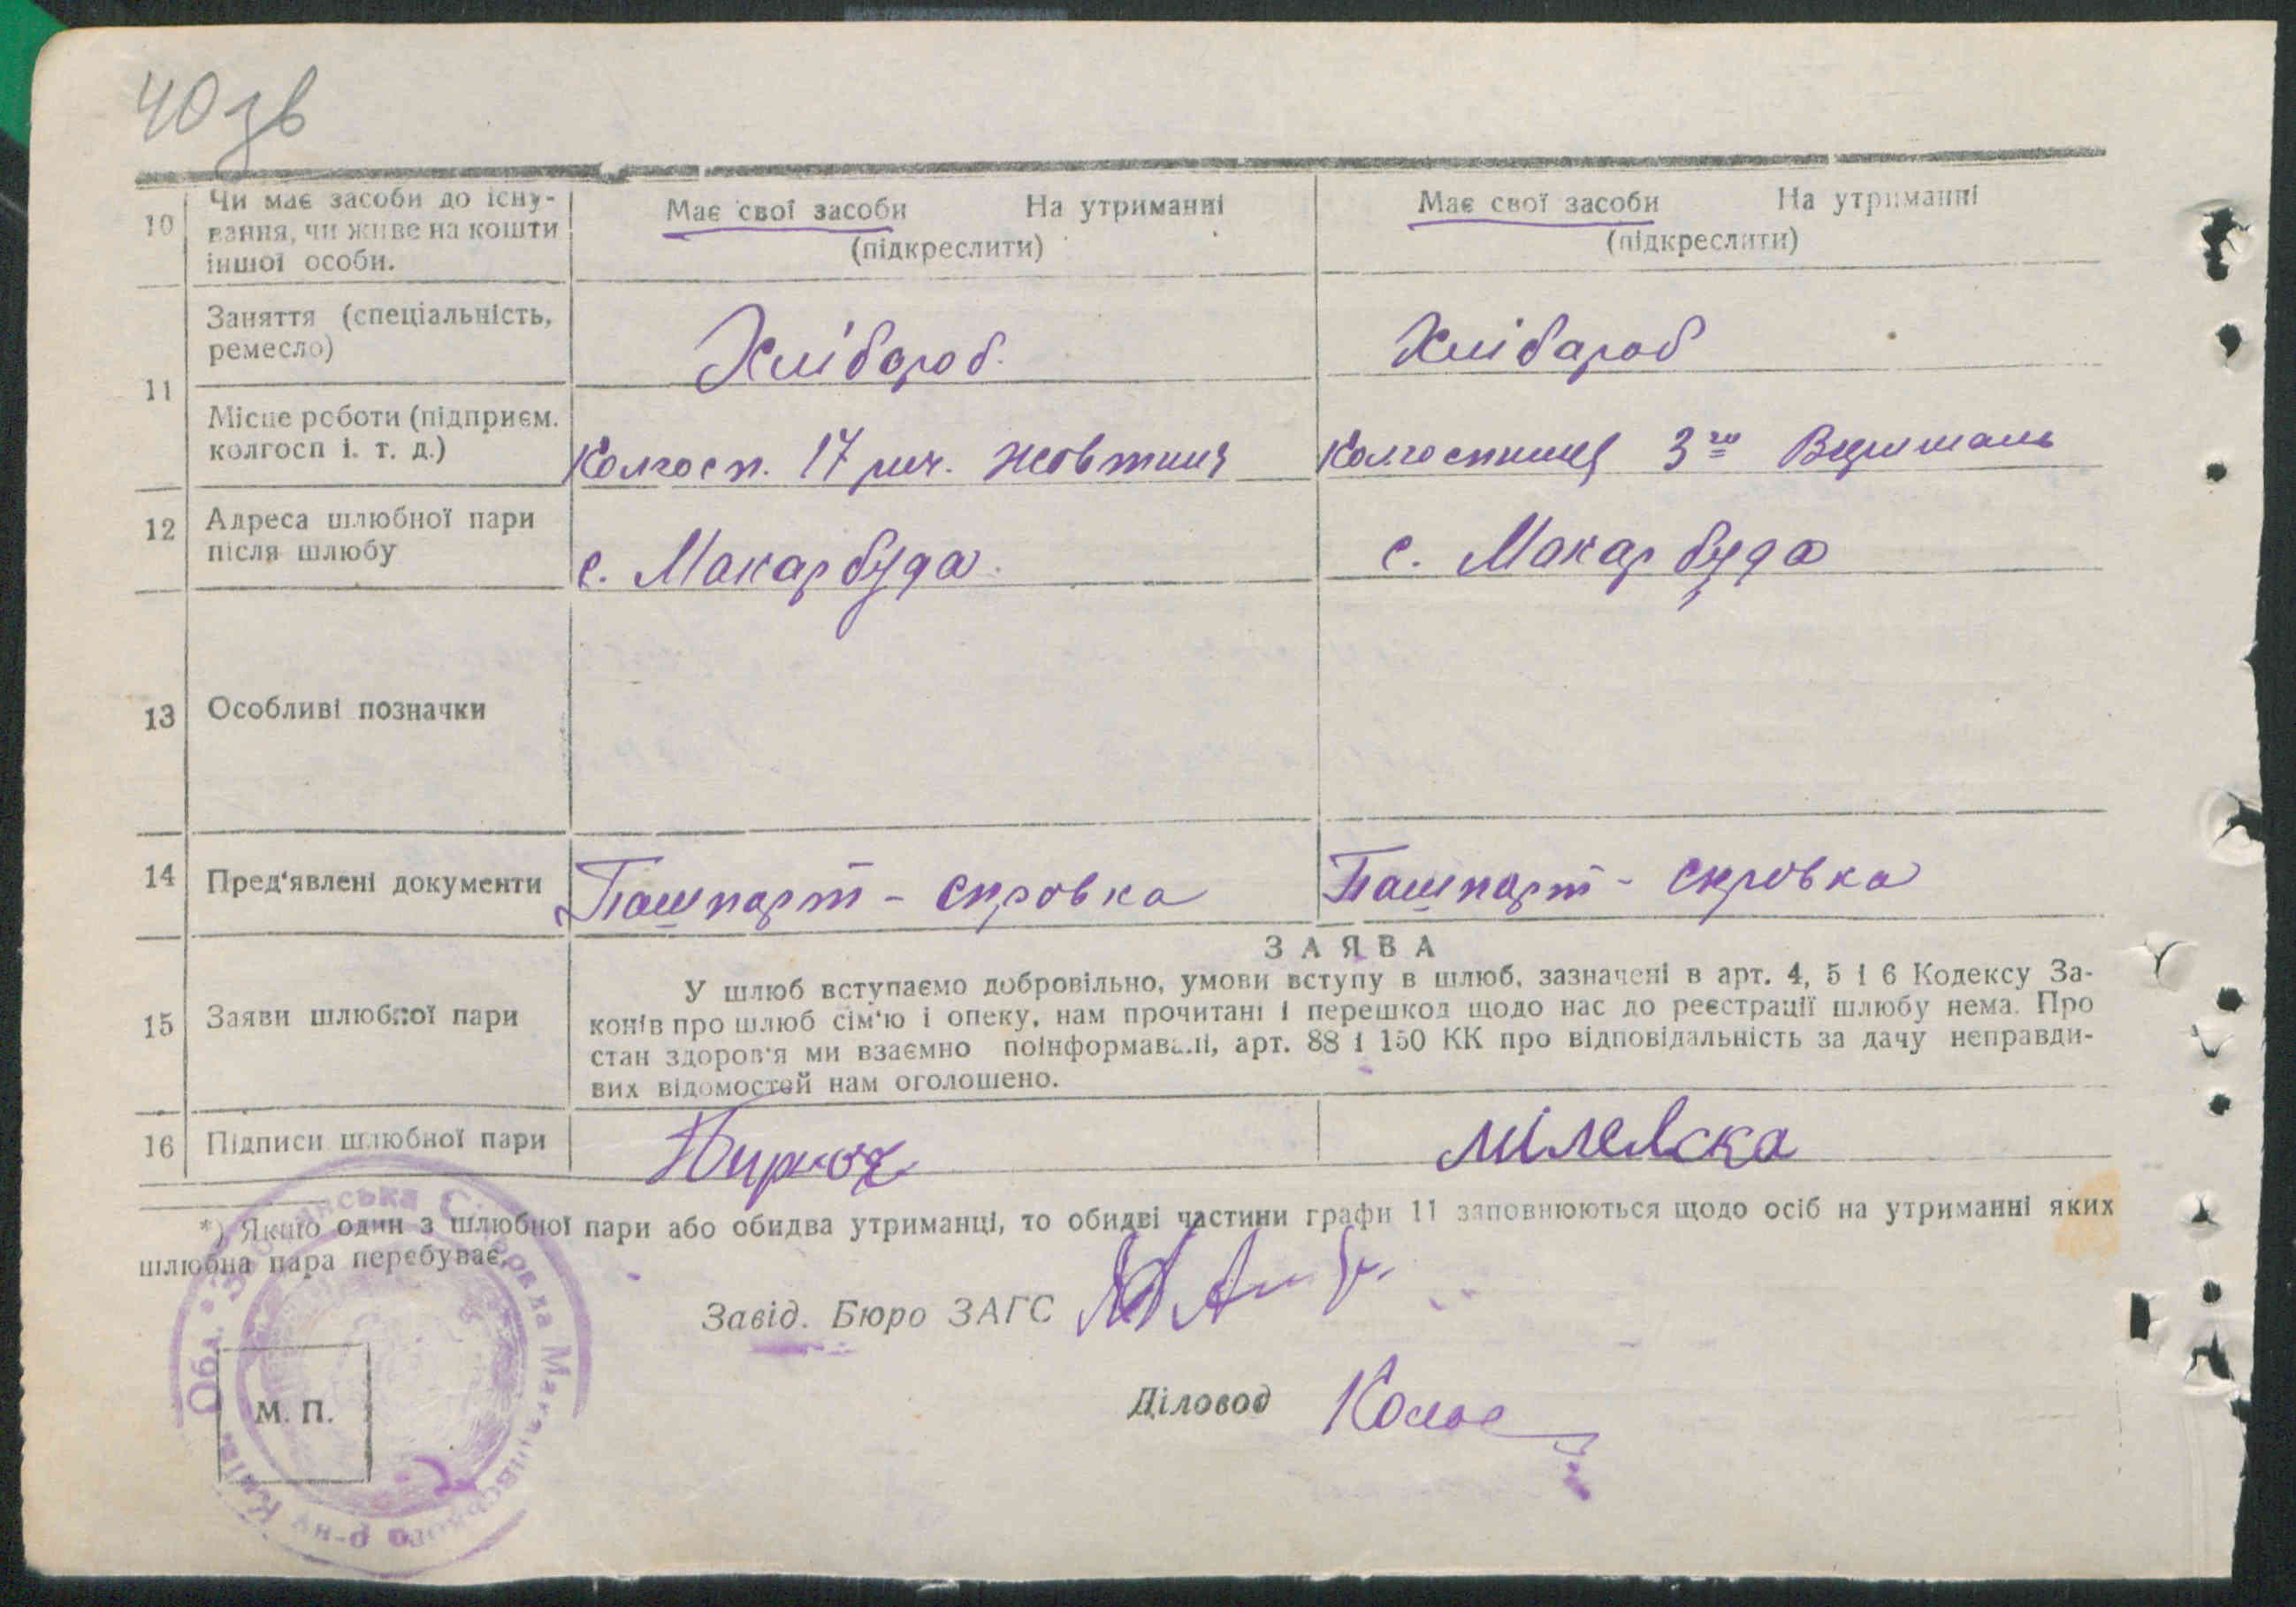 40 зв
10 Чи має засоби до існу-
вання, чи живе на кошти
іншої особи.
Має свої засоби На утриманні
(підкреслити)
Має свої засоби На утриманні
(підкреслити)
11
Заняття (спеціальність,
ремесло)
Хлібороб.
Хлібароб
Місце роботи (підприєм.
колгосп і. т. д.)
Колгосп. 17 рич. жовтния
Колгоспниця 3го
12 Адреса шлюбної пари
після шлюбу
с. Макар буда.
с. Макар буда
13 Особливі позначки
14 Пред'явлені документи
Пашпорт - справка
Пашпорт - справка
15 Заяви шлюбної пари
ЗАЯВА
У шлюб вступаємо добровільно, умови вступу в шлюб, зазначені в арт. 4, 5 і 6 Кодексу За-
конів про шлюб сім'ю і опеку, нам прочитані і перешкод щодо нас до реєстрації шлюбу нема. Про
стан здоров'я ми взаємно поінформавалі, арт. 88 і 150 КК про відповідальність за дачу неправди-
вих відомостей нам оголошено.
16 Підписи шлюбної пари
мілевска
*) Якщо один з шлюбної пари або обидва утриманці, то обидві частини графи 11 заповнюються щодо осіб на утриманні яких
шлюбна пара перебуває.
Завід. Бюро ЗАГС
Діловод Колос
М. П.